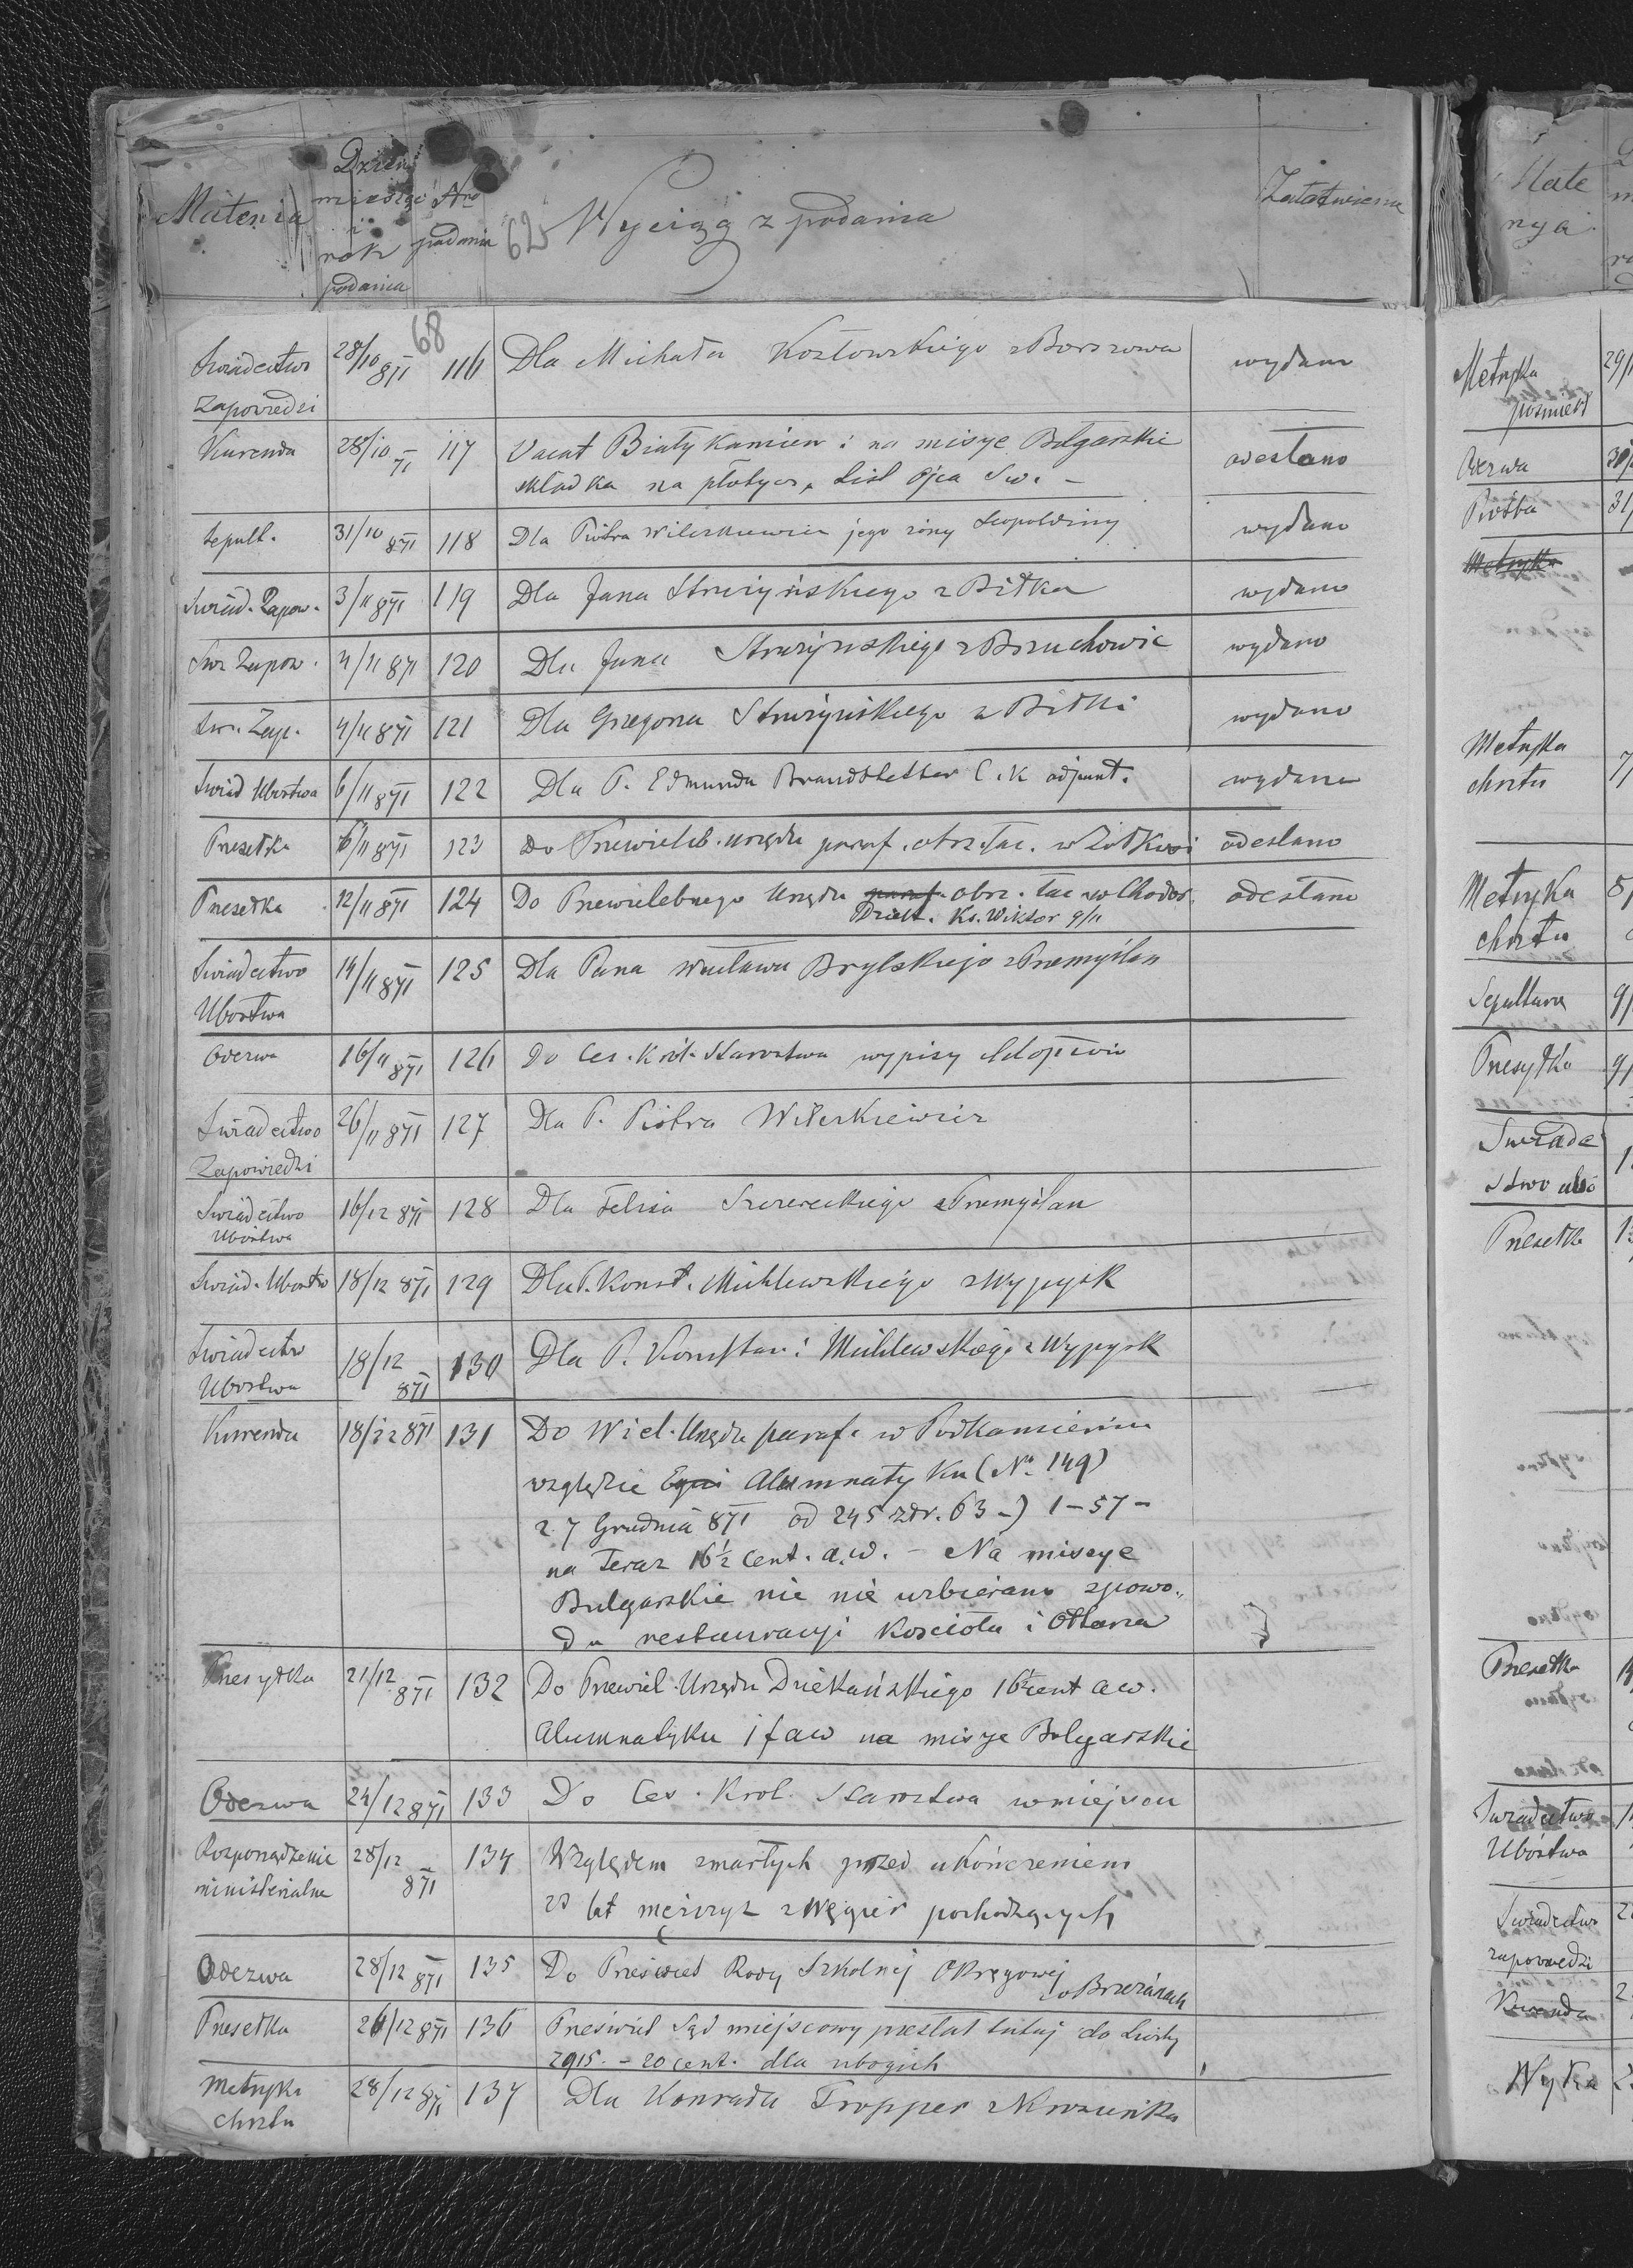 Materia Dzień miesiąc i rok podania Nro podania Wyciąg z podania Załatwienie
62
68
Świadectwo Zapowiedzi 28/10 871 116 Dla Michała Kozłowskiego z Borszowa wydano
Kurenda 28/10 71 117 Vacat Biały Kamień i na misye Bołgarskie odesłano
składka List Ojca Sw. –
Sepult. 31/10 871 118 Dla Piotra jego żony Leopoldiny wydano
Świad. Zapow. 3/11 871 119 Dla Jana Struzyńskiego z Biłka wydano
Sw. Zapow. 4/11 871 120 Dla Jana Struzyńskiego z Brzuchowic wydano
Sw. Zap. 4/11 871 121 Dla Grzegorza Struzyńskiego z Biłki wydano
Świad Ubóstwa 6/11 871 122 Dla P. Edmunda Brandstetter C. K adjunt. wydano
Przesełka 6/11 871 123 Do Przewieleb. urzędu paraf. obrz. łac. w Żółkwi odesłano
Przesełka 12/11 871 124 Do Przewielebnego Urzędu paraf. obrz. łac w Chodor. odesłano
Dziek. Ks. Wiktor 9/11
Świadectwo Ubóstwa 14/11 871 125 Dla Pana Wacława Brylskiego z Przemyślan
Odezwa 16/11 871 126 Do Ces. Król. Starostwa wypisy chłopców
Świadectwo Zapowiedzi 26/11 871 127 Dla P. Piotra Wilerkiewicz
Świadectwo Ubóstwa 16/12 871 128 Dla Felixa Szczereckiego z Przemyślan
Świad. Ubóstw 18/12 871 129 Dla P. Konst. Michlewskiego z Wypysk
Świadectw Ubóstwa 18/12 871 130 Dla P. Konstan: Michlewskiego z Wypysk
Kurenda 18/12 871 131 Do Wiel. Urzędu paraf. w Podkamieniu
względzie Alumnatyku (No. 149)
z 7 Grudnia 871 od 245 złr. 63 –) 1 – 57 –
na Teraz 16½ Cent. a.w. – Na misye
Bulgarskie nic nie uzbierano zpowo„
du restauracyi kościoła i Ołtarza
Przesyłka 21/12 871 132 Do Przewiel. Urzędu Dziekańskiego 16½ cent a w.
Alumnatyku 1 f aw na misye Bolgarskie
Odezwa 24/12 871 133 Do Ces. Krol. Starostwa w miejscu
Rozporządzenie ministerialne 28/12 871 134 Względem zmarłych przed ukończeniem
lat męzczyz z Węgier pochodzących
Odezwa 28/12 871 135 Do Przeświet Rady Szkolnej Okręgowej
w Brzeżanach
Przesełka 26/12 871 136 Przeświet Sąd miejscowy przesłał tutaj do Liczby
2915. – 20 cent. dla ubogich
Metryka chrztu 28/12 871 137 Dla Konrada Tropper
Mate
rya
Metryka
29/
Odezwa
30/
Prośba
31/
Metryka
Metryka
chrztu
7/
Metryka
chrztu
8/
Sepultura
9/
Przesyłka
9/
Świade
stwo ubó
Przesełka
Przesełka
Świadectwo
Ubóstwa
Świadectwo
zapowiedzi
Kurenda